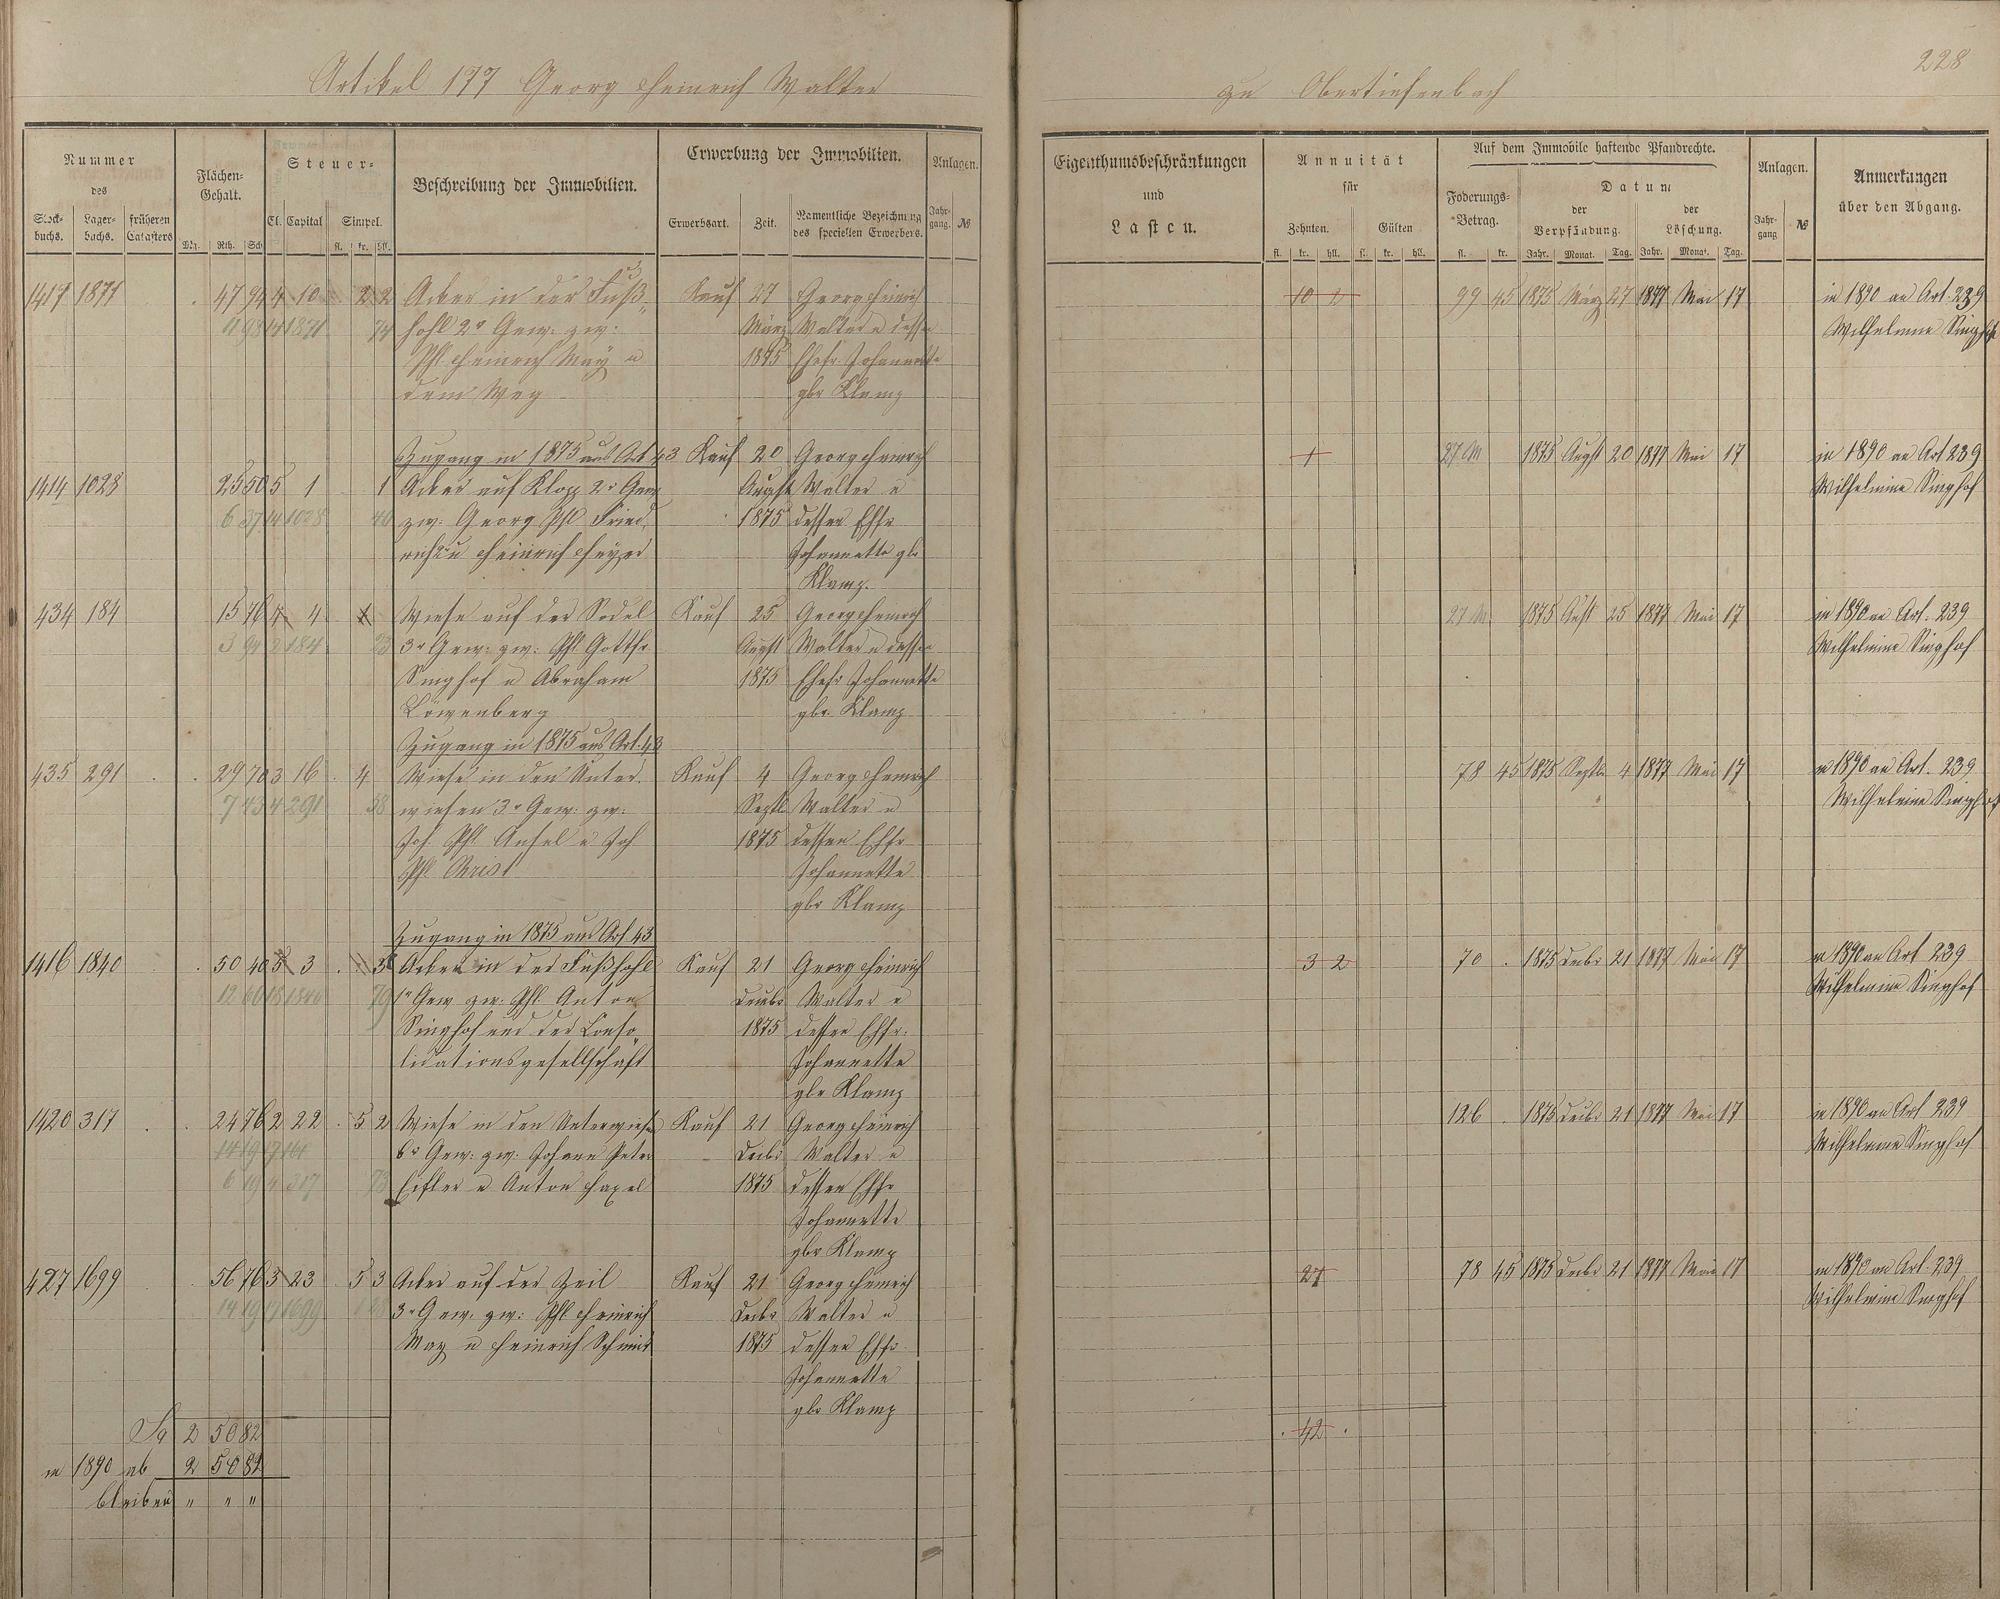 Artikel 177 Georg Heinrich Walter
zu Obertiefenbach
228
Nummer
des
Stockbuchs. Lagerbuchs. früheren Catasters
Flächen-Gehalt.
Mg. Rth. Sch.
Steuer-
Cl. Capital Simpel.
fl. kr. hll.
Beschreibung der Immobilien.
Erwerbung der Immobilien.
Erwerbsart. Zeit. Namentliche Bezeichnung des speciellen Erwerbers.
Anlagen.
Jahrgang. №
Eigenthumsbeschränkungen
und
Lasten.
Annuität
für
Zehnten. Gülten
fl. kr. hll. fl. kr. hll.
Auf dem Immobile haftende Pfandrechte.
Foderungs-Betrag.
fl. kr.
Datum
der Verpfändung. der Löschung.
Jahr. Monat. Tag. Jahr. Monat. Tag.
Anlagen.
Jahrgang №
Anmerkungen
über den Abgang.
1417 1871 47 94 4 10 2 2 Acker in der Fuß- Kauf 27 Georg Heinrich 10 2 99 45 1875 März 27 1877 Mai 17 in 1890 an Art. 239
11 98 14 1871 74 hohl 2r Gew: zw: März Walter u dessen Wilhelmine Singhof
Phl. Heinrich May u 1875 Ehefr. Johannette
dem Weg gbr Klamp
Zugang in 1875 aus Art 43 Kauf 20 Georg Heinrich 1 27 1875 Augst 20 1877 Mai 17 in 1890 an Art 239
1414 1028 25 50 5 1 1 Acker auf Klopp 2r Gew Augst Walter u Wilhelmine Singhof
6 37 14 1028 40 zw: Georg Phl Fried- 1875 dessen Ehfr
rich u Heinrich Heyer Johannette gbr
Klamp.
434 184 15 76 4 4 1 Wiese auf der Sodel Kauf 25 Georg Heinrich 27 1875 Augst 25 1877 Mai 17 in 1890 an Art. 239
3 94 2 184 23 3r Gew: zw: Phl Gottfr Augst Walter u dessen Wilhelmine Singhof
Singhof u Abraham 1875 Ehefr Johannette
Löwenberg gbr. Klamp
Zugang in 1875 aus Art. 43
435 291 29 70 3 16 4 Wiese in den Unter- Kauf 4 Georg Heinrich 78 45 1875 Septbr 4 1877 Mai 17 in 1890 an Art. 239
7 43 4 291 58 wiesen 3r Gew: zw: Septbr Walter u Wilhelmine Singhof
Joh. Phl. Ansel u Joh 1875 dessen Ehfr
Phl Christ Johannette
gbr Klamp
Zugang in 1875 aus Art 43
1416 1840 50 40 5 3 3 Acker in der Fußhohl Kauf 21 Georg Heinrich 3 2 70 . 1875 Decbr 21 1877 Mai 17 in 1890 an Art 239
12 60 18 1840 79 1r Gew zw: Phl. Anton Decbr Walter u Wilhelmine Singhof
Singhof und der Conso- 1875 dessen Ehfr.
lidationsgesellschaft Johannette
gbr Klamp
1420 317 24 76 2 22 5 2 Wiese in den Unterwiesen Kauf 21 Georg Heinrich 126 . 1875 Decbr 21 1877 Mai 17 in 1890 an Art 239
6r Gew: zw: Johann Peter Decbr Walter u Wilhelmine Singhof
6 19 4 317 73 Eisler u Anton Hazel 1875 dessen Ehfr
Johannette
gbr Klamp
427 1699 56 76 3 23 5 3 Acker auf der Zeil Kauf 21 Georg Heinrich 27 78 45 1875 Decbr 21 1877 Mai 17 in 1890 an Art. 239
14 19 17 1699 3r Gew. zw: Phl Heinrich Decbr Walter u Wilhelmine Singhof
May u Heinrich Schmidt 1875 dessen Ehfr
Johannette
gbr Klamp
Sa 2 50 82 . 42 .
in 1890 ab 2 50 82
bleiben " " "